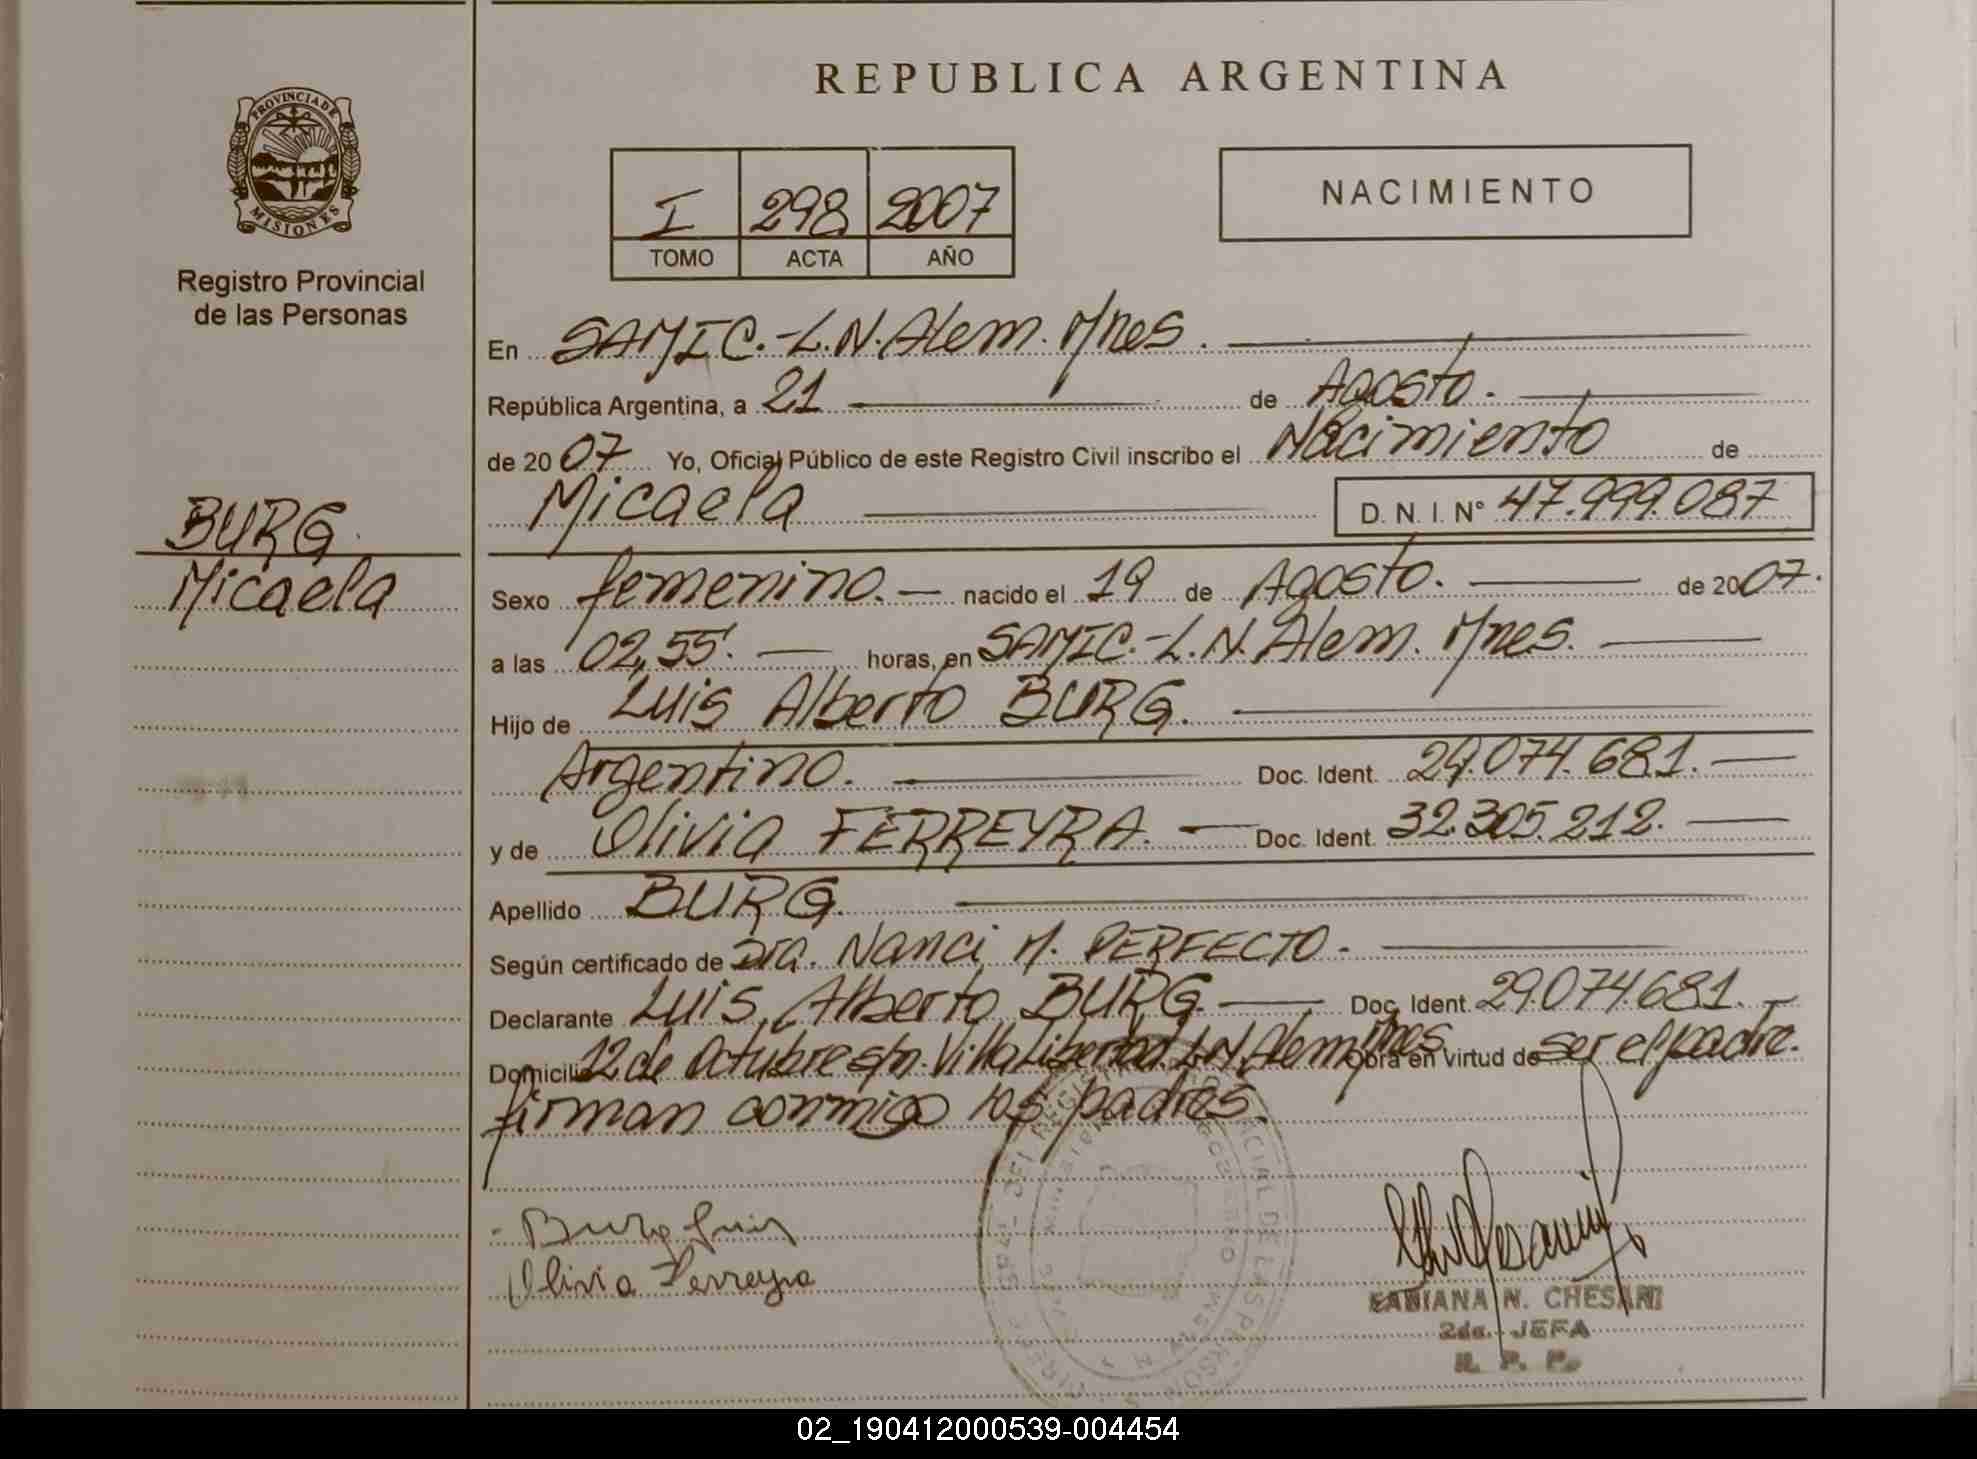 PROVINCIA DE
MISIONES
Registro Provincial
de las Personas
BURG.
Micaela
REPUBLICA ARGENTINA
I 298 2007
TOMO ACTA AÑO
NACIMIENTO
En SAMIC.-L.N.Alem. Mnes.
República Argentina, a 21 de Agosto.
de 2007 Yo, Oficial Público de este Registro Civil inscribo el Nacimiento de
Micaela D. N. I. N° 47.999.087
Sexo femenino. nacido el 19 de Agosto. de 2007.
a las 02,55'. horas, en SAMIC.-L.N. Alem. Mnes.
Hijo de Luis Alberto BURG.
Argentino. Doc. Ident. 29.074.681.
y de Olivia FERREYRA. Doc. Ident. 32.305.212.
Apellido BURG.
Según certificado de Dra. Nanci M. PERFECTO.
Declarante Luis Alberto BURG. Doc. Ident. 29.074.681.
Domicilio 12 de Octubre s/n. Villa Libertad. L.N.Alem Mnes Obra en virtud de ser el padre.
firman conmigo los padres.
Burg Luis
Olivia Ferreyra
FABIANA N. CHESANI
2da. JEFA
R. P. P.
02_190412000539-004454